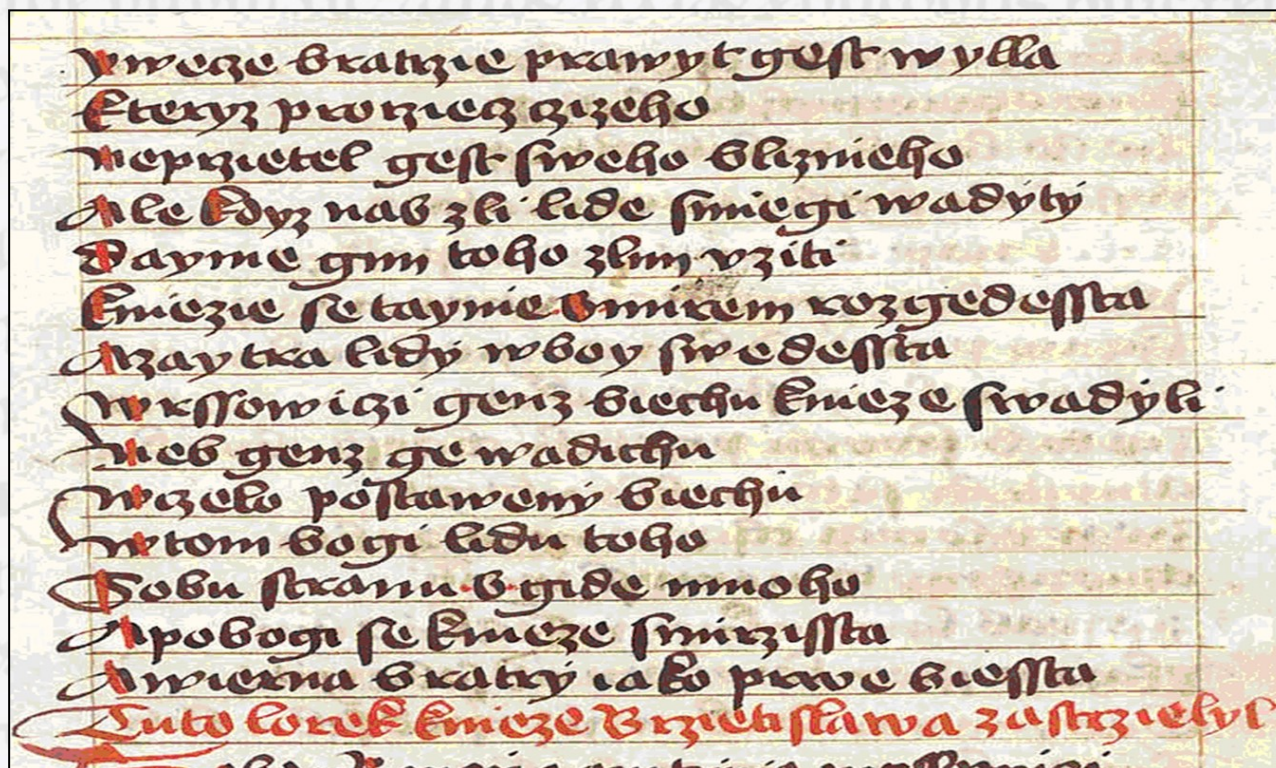 wwecze bratrzie prawyt gest wylla
kteryz proziecz czizeho
neprzietel gest sweho bliznieho
Ale kdyz nas zli lide smiegi wadyty
dayme gim toho zlim vziti
kniezie se taynie smirem rozgedessta
Azaytra lidy wboy swedessta
Wrssowiczi genz biechu knieze swadyli
nes genz ge wadichu
wczelo postaweny biechu
wtom bogi lidu toho
Sobu stranu s gide mnoho
Apobogi se knieze smirzissta
Awierna bratry iako prwe biessta
Tuto lorek knieze Brzietislawa zastrzielyl